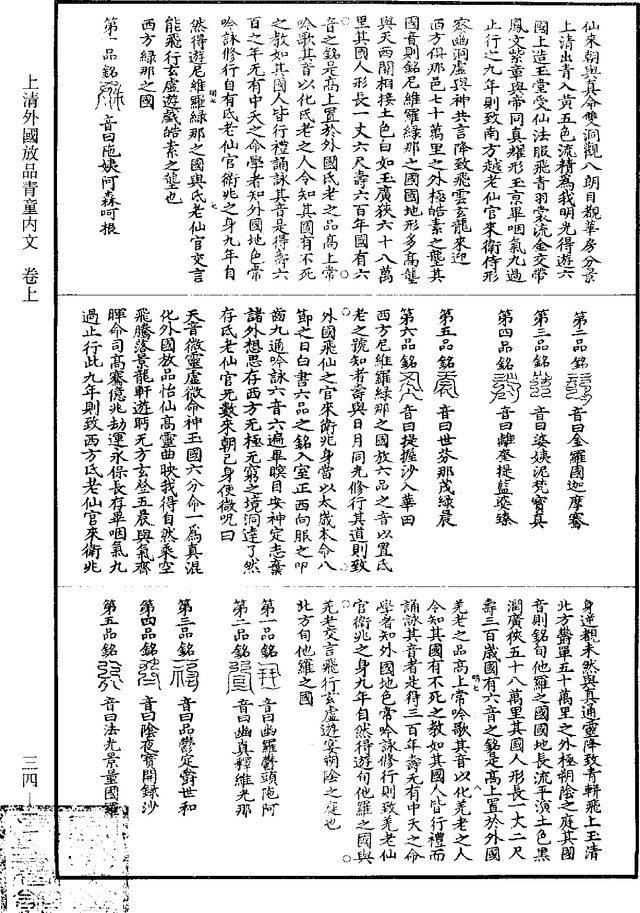 仙來朝與真命雙洞觀八朗目覩華房分景
上清出青入黃五色流精為我明光得遊六
國上造玉堂受仙法服飛青羽裳流金交帶
鳳文紫章與帝同真耀形玉京畢咽氣九過
止行之九年則致南方越老仙官來衛侍形
察幽洞虛與神共言降致飛雲玄龍來迎
西方俱那邑七十萬里之外極皓素之壟其
國音則銘尼維羅綠那之國國地形多高壟
與天西關相接土色白如玉廣狹六十八萬
里其國人形長一丈六尺壽六百年國有六
音之銘是高上置於外國氐老之品高上常
吟歌其音以化氐老之人令知其國有不死
之教如其國人皆行禮誦詠其音是得壽六
百之年无有中夭之命學者知外國地色常
吟詠修行自有氐老仙官衛兆之身九年自
然得遊尼維羅綠那之國與氐老仙官交言
能飛行玄虛遊戲皓素之壟也
西方綠那之國
第一品銘 音曰陁姨阿森呵根
第二品銘 音曰金羅國迦摩騫
第三品銘 音曰婆姨泥梵寶真
第四品銘 音曰離 提藍婆臻
第五品銘 音曰世芬那茂綠晨
第六品銘 音曰提握沙入華田
西方尼維羅綠那之國放六品之音以置氐
老之號知者壽與日月同光修行其道則致
外國飛仙之官來衛兆身當以太歲本命八
節之日白書六品之銘入室正西向服之叩
齒九通吟詠六音六遍畢瞑目安神定志棄
諸外想思存西方无極无窮之境洞達了然
存氐老仙官无數來朝己身便微呪曰
天音微靈虛微命神玉國六分命一為真混
化外國放品怡仙高靈曲映我得自然乘空
飛騰落景龍軒遊眄无方玄 五辰與氣齊
暉命司高騫億兆劫運永保長存畢咽氣九
過止行此九年則致西方氐老仙官來衛兆
身逆覩未然與真通靈降致青軿飛上玉清
北方欝單五十萬里之外極朔陰之庭其國
音則銘旬他羅之國國地長流平演土色黑
潤廣狹五十八萬里其國人形長一丈二尺
壽三百歲國有六音之銘是高上置於外國
羌老之品高上常吟歌其音以化羌老之人
令知其國有不死之教如其國人皆行禮而
誦詠其音者是得三百年壽无有中夭之命
學者知外國地色常吟詠修行則致羌老仙
官衛兆之身九年自然得遊旬他羅之國與
羌老交言飛行玄虛遊宴朔陰之庭也
北方旬他羅之國
第一品銘 音曰幽羅欝頭陁阿
第二品銘 音曰幽真釋維光那
第三品銘 音曰品欝定霄世和
第四品銘 音曰陰夜寶開録沙
第五品銘 音曰法光景量國羅
上清外國放品青童内文 卷上
三四